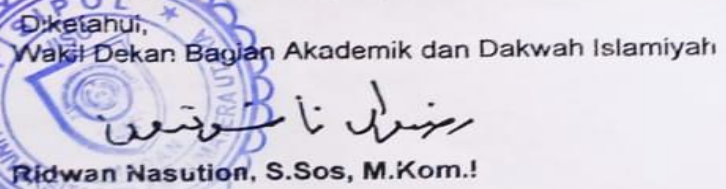 Diketahui,
Wakil Dekan Bagian Akademik dan Dakwah Islamiyah
Ridwan Nasution, S.Sos, M.Kom.I